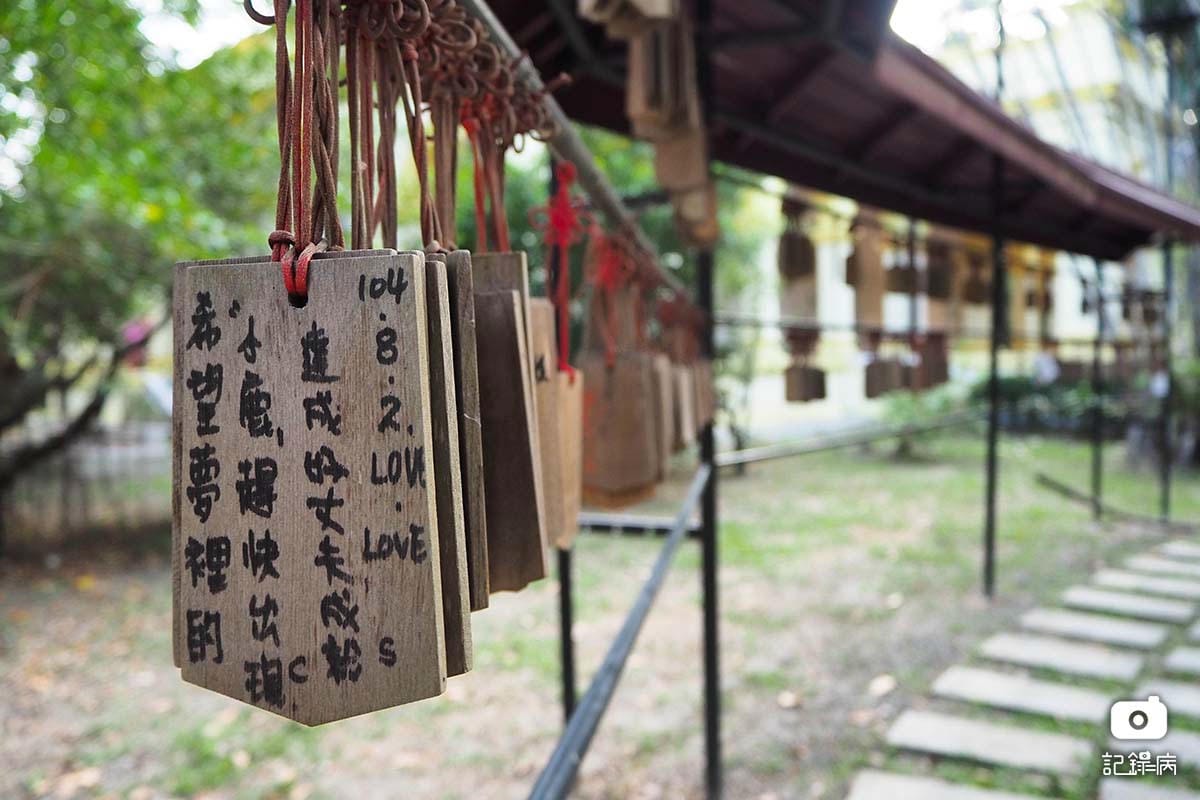 希望夢裡的
趕快出現 C
達成好丈夫成
104.8.2.
LOVE
LOVE
S
記錄病